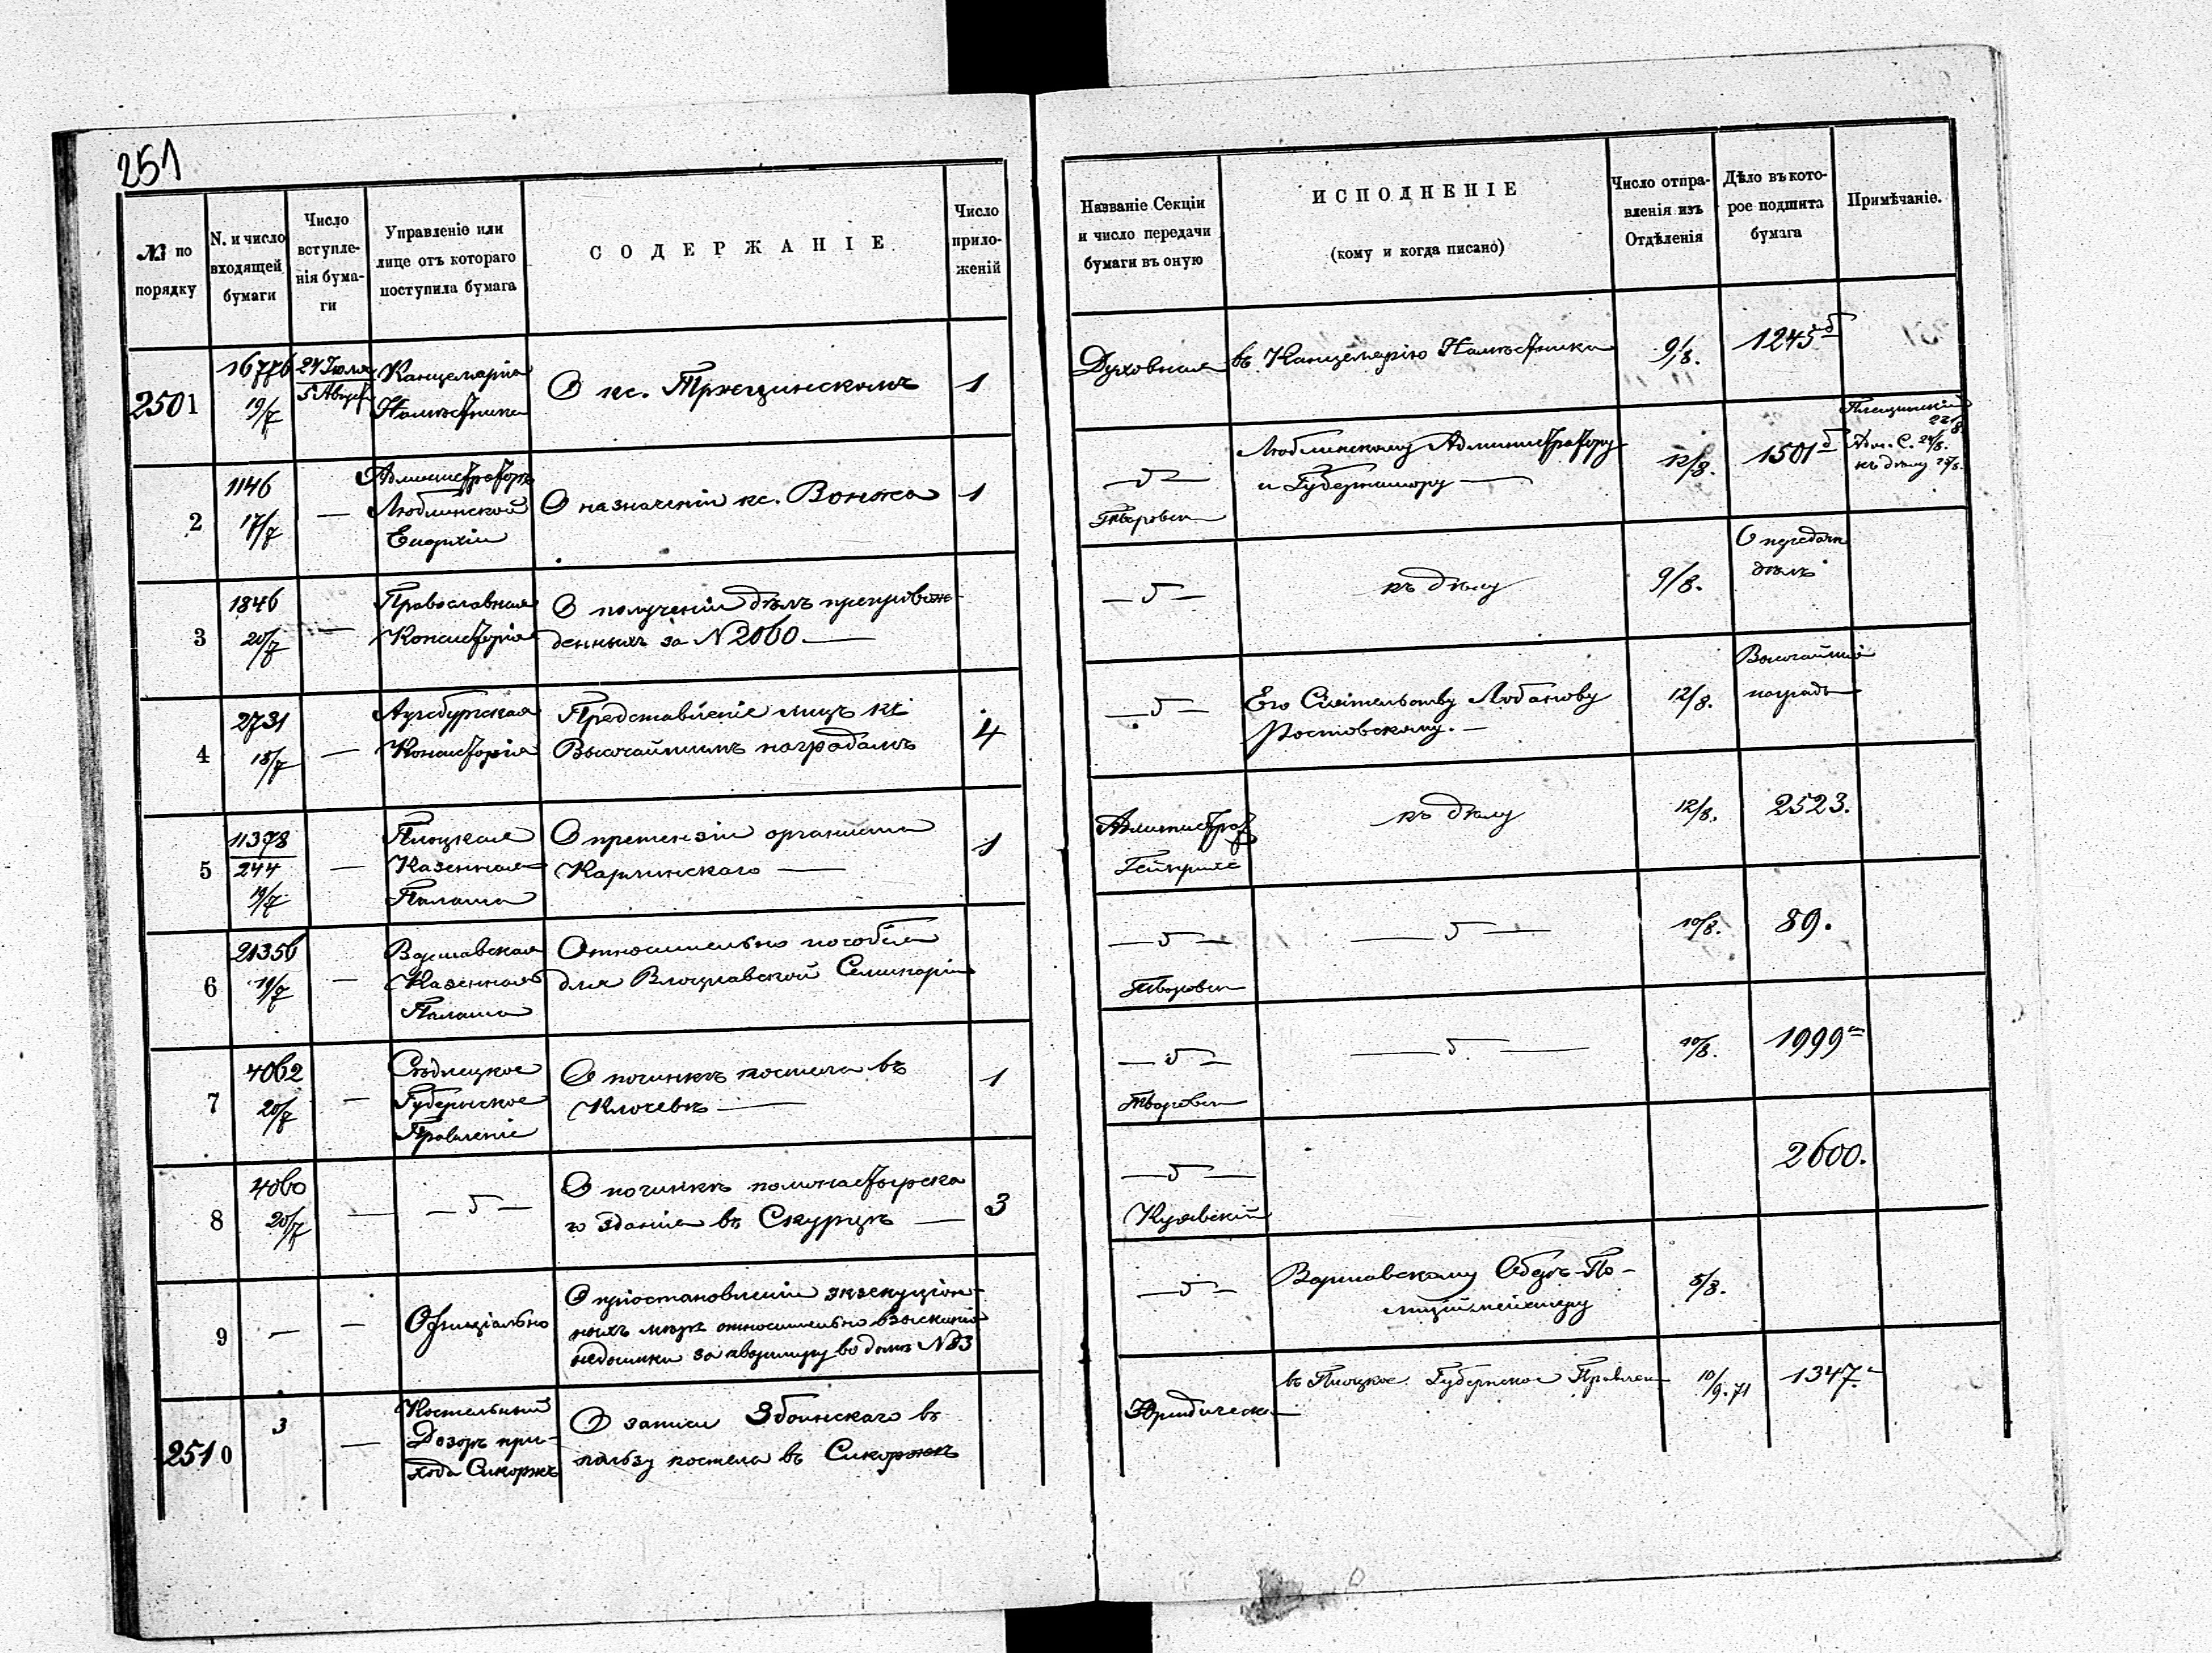 251
№ по порядку
N. и число входящей бумаги
Число вступле- нія бума- ги
Управленіе или лице отъ котораго поступила бумага
СОДЕРЖАНІЕ
Число прило- женій
Названіе Секціи и число передачи бумаги въ оную
ИСПОДНЕНІЕ
(кому и когда писано)
Число отпра- вленія изъ Отдѣленія
Дѣло въ кото- рое подшита бумага
Примѣчаніе.
2501
16776
19/7
24 Іюля
5 Август
Канцелярія
Намѣстника
О кс. Тржецинскомъ
1
Духовная
въ Канцелярію Намѣстника
9/8.
1245
2
1146
17/7
—
Администраторъ
Люблинской
Епархіи
О назначеніи кс. Вонжа
1
Люблинскому Администратору
и Губернатору —
12/8.
1501
24/8.
къ дѣлу
3
1846
20/7
—
Православная
Консисторія
О полученіи дѣлъ препровож-
денныхъ за N 2060 —
къ дѣлу
9/8.
О передачѣ
дѣлъ
4
2731
18/7
—
Аугсбургская
Консисторія
Представленіе лицъ къ
Высочайшимъ наградамъ
4
Его Сіятельству Лобанову
Ростовскому. —
12/8.
Высочайшія
награды
5
11378
244
19/7
—
Плоцкая
Казенная
Палата
О претензіи органиста
Карлинскаго —
1
Администрат
къ дѣлу
12/8.
2523.
6
21356
19/7
—
Варшавская
Казенная
Палата
Относительно пособія
для Влоцлавской Семинаріи
10/8.
89.
7
4062
20/7
—
Сѣдлецкое
Губернское
Правленіе
О починкѣ костела въ
Клочевѣ —
1
10/8.
1999
8
4060
20/7
—
О починкѣ помонастырска
го зданія въ Скурцѣ —
3
Куявскій
2600.
9
—
—
Офиціально
О пріостановленіи экзекуціон-
ныхъ мѣръ относительно взысканія
недоимки за квартиру въ домѣ N 83
Варшавскому Оберъ-По-
лиціймейстеру
5/8.
2510
3
—
Костельный
Дозоръ при-
хода Сикоржъ
О записи Збоинскаго въ
пользу костела въ Сикоржѣ
Юридическая
въ Плоцкое Губернское Правлен
10/9. 71
1347.